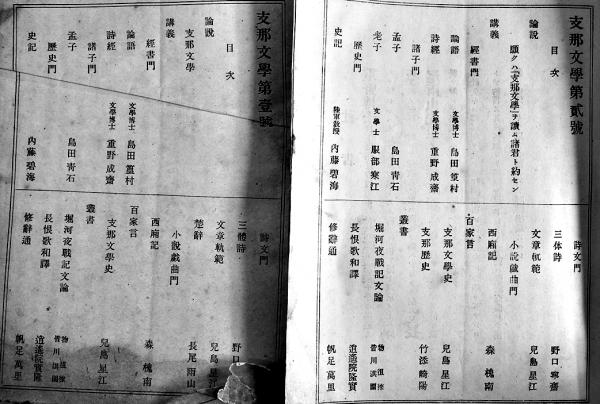 支那文學第貳號
目次
論説
願クハ「支那文學」ヲ讀ム諸君ト約セン
講義
經書門
論語 文學博士 島田篁村
詩經 文學博士 重野成齋
諸子門
孟子 島田青石
老子 文學士 服部寒江
歴史門
史記 陸軍教授 內藤碧海
詩文門
三体詩 野口寧齋
文章軌範 兒島星江
小説戯曲門
西廂記 森槐南
百家言
支那文學史 兒島星江
支那歴史 竹添崎陽
叢書
堀河夜戰記文論 物徂徠 皆川淇園
長恨歌和譯 逍遙院實隆
修辭通 帆足萬里
支那文學第壹號
目次
論説
支那文學
講義
經書門
論語 文學博士 島田篁村
詩經 文學博士 重野成齋
諸子門
孟子 島田青石
歴史門
史記 內藤碧海
詩文門
三體詩 野口
文章軌範 兒島星江
楚辭 長尾雨山
小説戯曲門
西廂記 森槐南
百家言
支那文學史 兒島星江
叢書
堀河夜戰記文論 物徂徠 皆川淇園
長恨歌和譯 逍遙院實隆
修辭通 帆足萬里